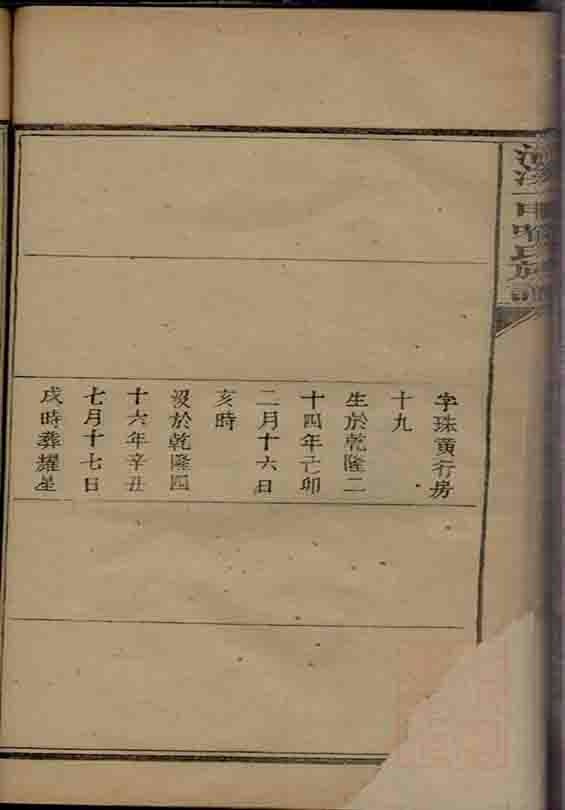 氏族譜
字珠黃行房
十九
生於乾隆二
十四年己卯
二月十六日
亥時
沒於乾隆四
十六年辛丑
七月十七日
戌時葬耀星